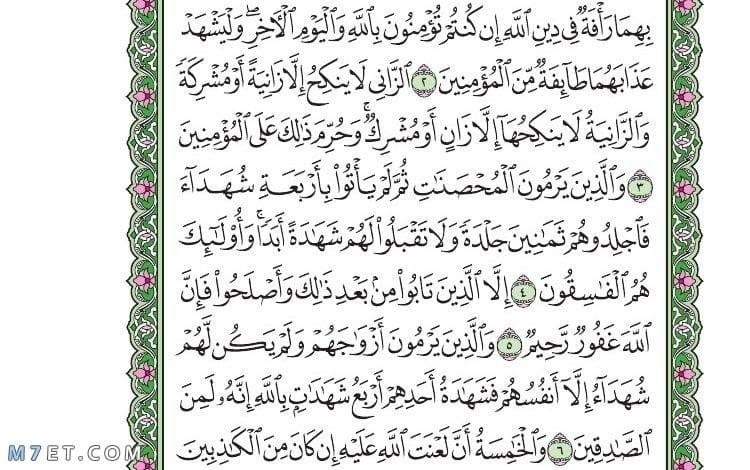 بِهِمَا رَأْفَةٌ فِي دِينِ ٱللَّهِ إِن كُنتُمْ تُؤْمِنُونَ بِٱللَّهِ وَٱلْيَوْمِ ٱلْأَخِرِ ۖ وَلْيَشْهَدْ
عَذَابَهُمَا طَآئِفَةٌ مِّنَ ٱلْمُؤْمِنِينَ ٢ ٱلزَّانِي لَا يَنكِحُ إِلَّا زَانِيَةً أَوْ مُشْرِكَةً
وَٱلزَّانِيَةُ لَا يَنكِحُهَآ إِلَّا زَانٍ أَوْ مُشْرِكٌ ۚ وَحُرِّمَ ذَٰلِكَ عَلَى ٱلْمُؤْمِنِينَ
٣ وَٱلَّذِينَ يَرْمُونَ ٱلْمُحْصَنَٰتِ ثُمَّ لَمْ يَأْتُوا۟ بِأَرْبَعَةِ شُهَدَآءَ
فَٱجْلِدُوهُمْ ثَمَٰنِينَ جَلْدَةً وَلَا تَقْبَلُوا۟ لَهُمْ شَهَٰدَةً أَبَدًا ۚ وَأُو۟لَٰٓئِكَ
هُمُ ٱلْفَٰسِقُونَ ٤ إِلَّا ٱلَّذِينَ تَابُوا۟ مِنۢ بَعْدِ ذَٰلِكَ وَأَصْلَحُوا۟ فَإِنَّ
ٱللَّهَ غَفُورٌ رَّحِيمٌ ٥ وَٱلَّذِينَ يَرْمُونَ أَزْوَٰجَهُمْ وَلَمْ يَكُن لَّهُمْ
شُهَدَآءُ إِلَّآ أَنفُسُهُمْ فَشَهَٰدَةُ أَحَدِهِمْ أَرْبَعُ شَهَٰدَٰتٍۭ بِٱللَّهِ إِنَّهُۥ لَمِنَ
ٱلصَّٰدِقِينَ ٦ وَٱلْخَٰمِسَةُ أَنَّ لَعْنَتَ ٱللَّهِ عَلَيْهِ إِن كَانَ مِنَ ٱلْكَٰذِبِينَ
M7ET.COM